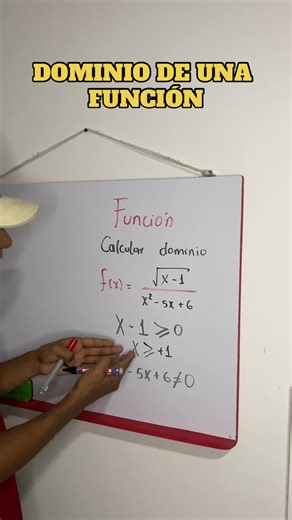 DOMINIO DE UNA
FUNCIÓN
Función
Calcular dominio
f(x) = √x - 1 / x² - 5x + 6
x - 1 ⩾ 0
x ⩾ +1
- 5x + 6 ≠ 0